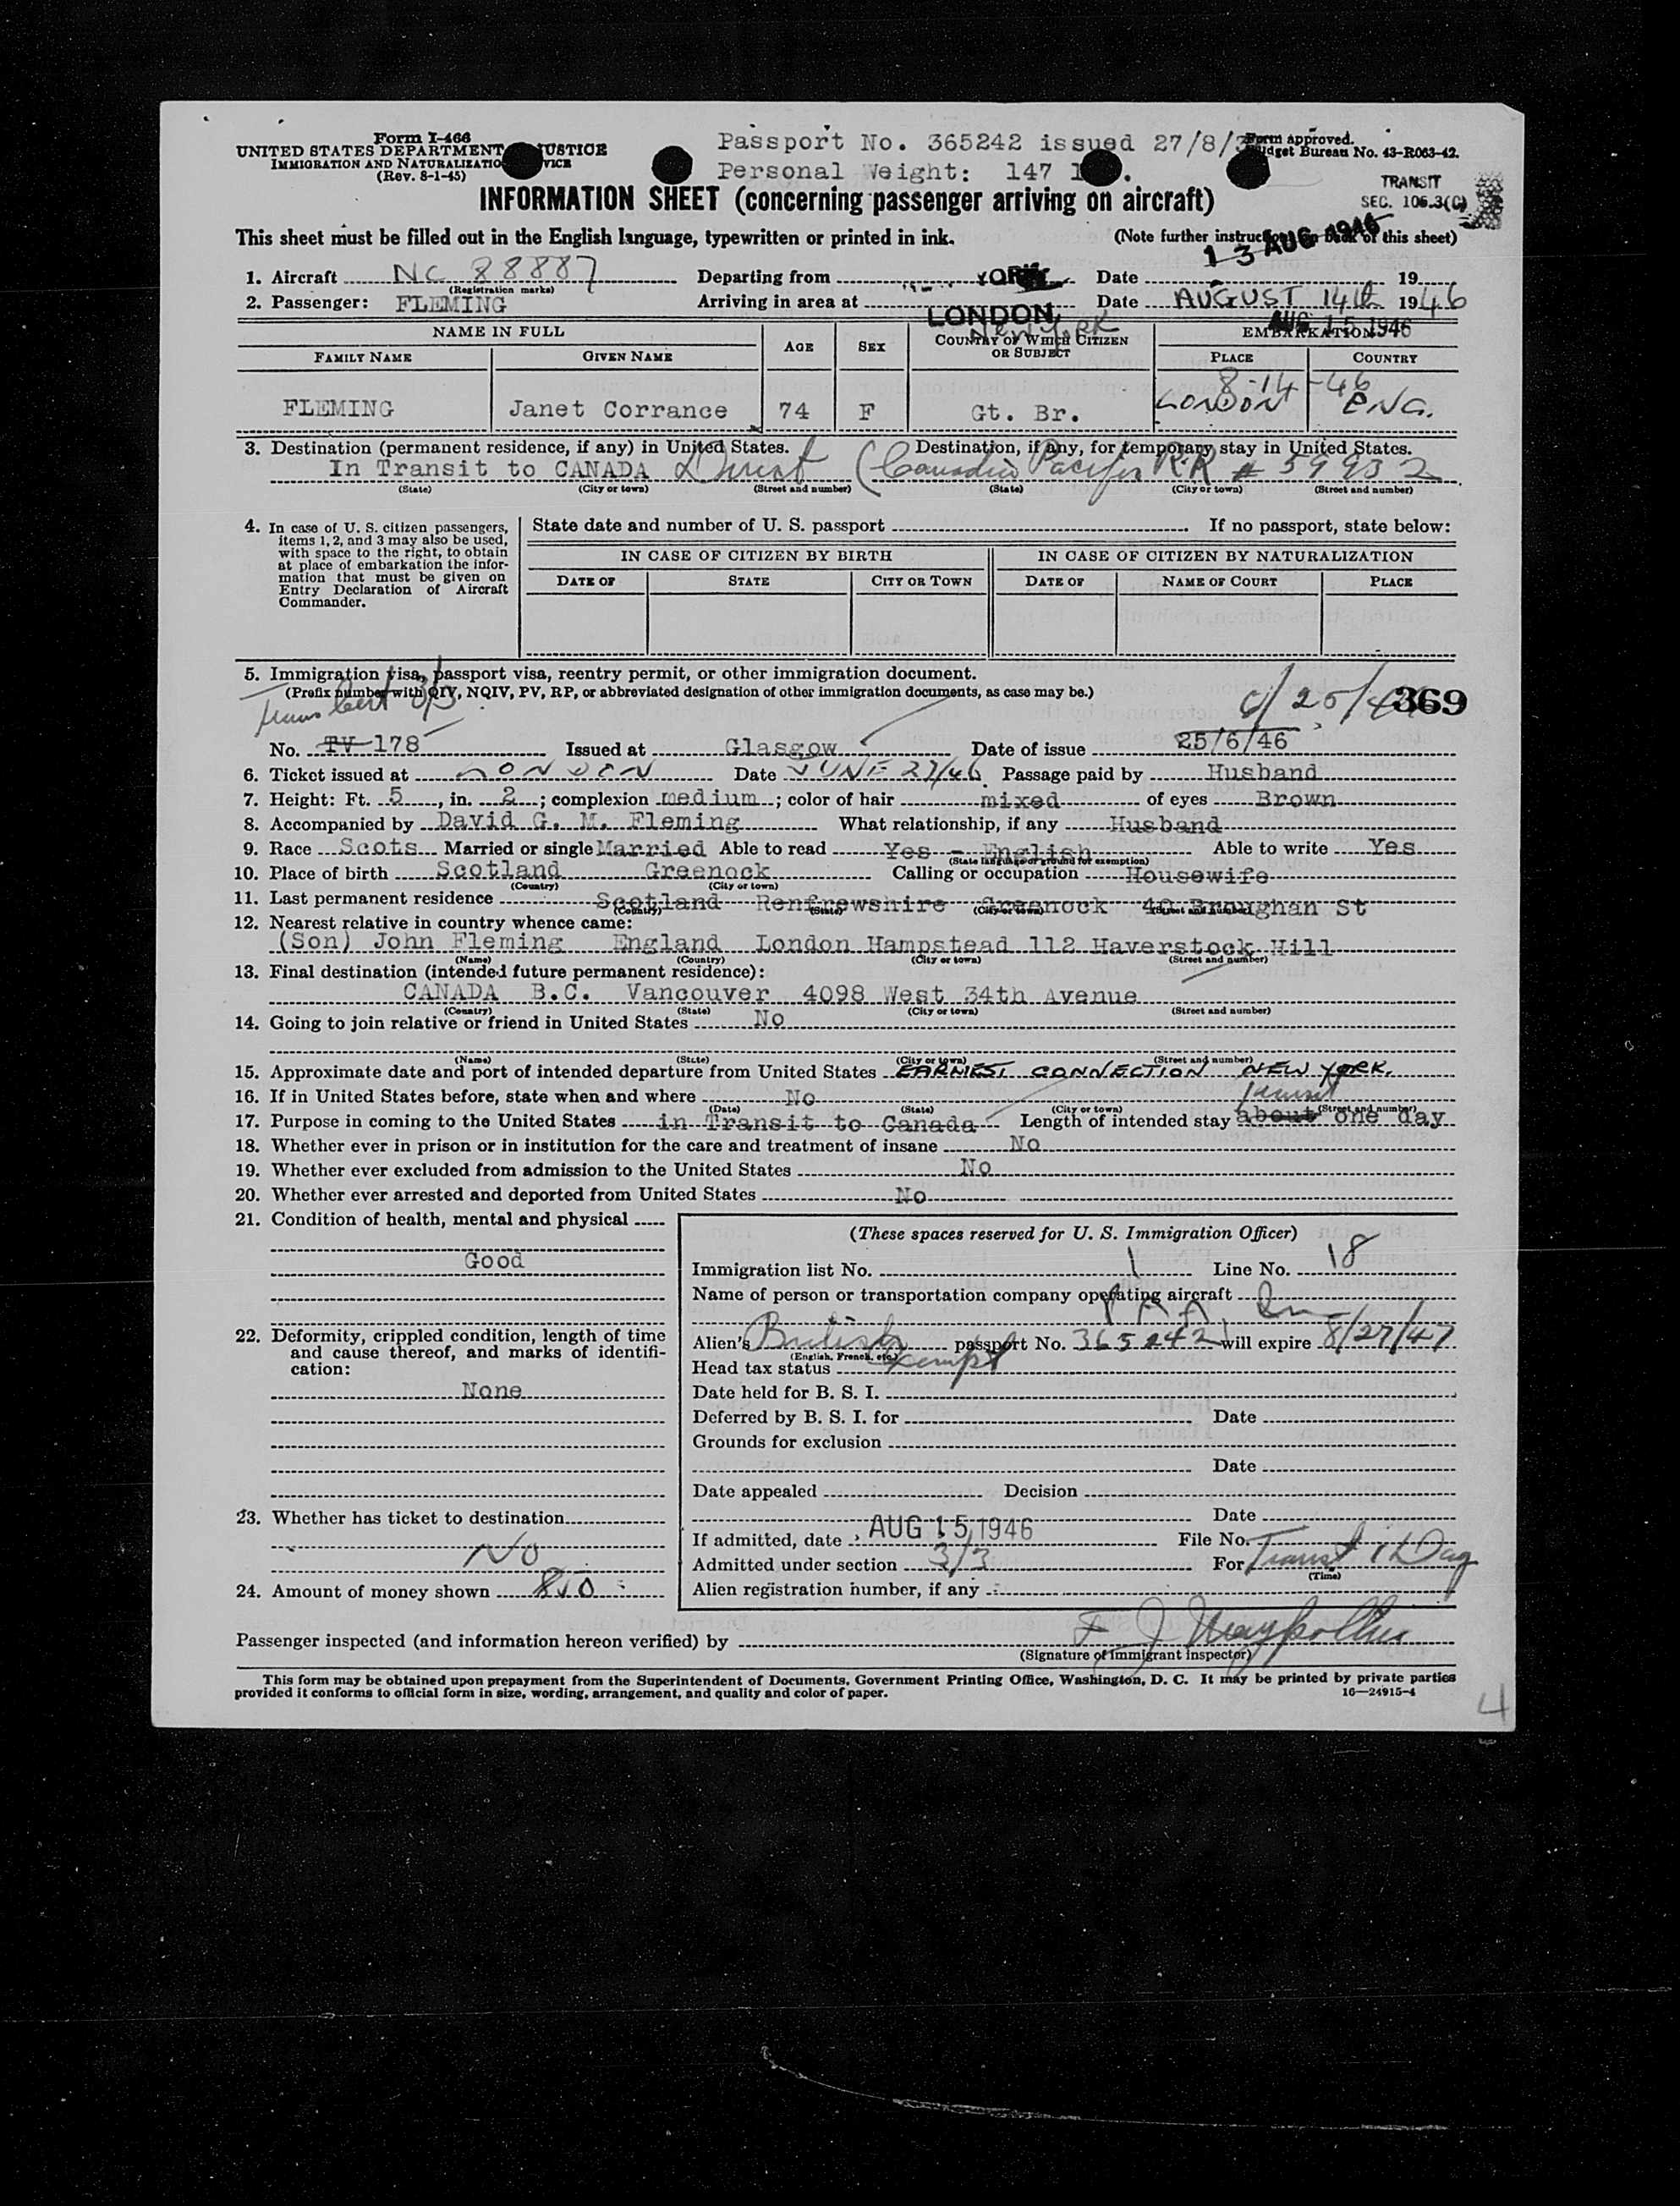 Form I-466
UNITED STATES DEPARTMENT JUSTICE
IMMIGRATION AND NATURALIZATIO VICE
(Rev. 8-1-45)
Passport No. 365242 issued 27/8/3
Personal Weight: 147 l .
Form approved.
Budget Bureau No. 43-R063-42.
TRANSIT
SEC. 106.3(C)
INFORMATION SHEET (concerning passenger arriving on aircraft)
This sheet must be filled out in the English language, typewritten or printed in ink.
(Note further instructions on back of this sheet)
13 AUG 1946
1. Aircraft NC 88887 Departing from YORK Date 19
(Registration marks)
2. Passenger: FLEMING Arriving in area at Date AUGUST 14th 1946
LONDON
New York
AUG 15 1946
NAME IN FULL AGE SEX COUNTRY OF WHICH CITIZEN OR SUBJECT EMBARKATION
FAMILY NAME GIVEN NAME PLACE COUNTRY
8-14-46
FLEMING Janet Corrance 74 F Gt. Br. LONDON ENG.
3. Destination (permanent residence, if any) in United States. Destination, if any, for temporary stay in United States.
In Transit to CANADA Direct (Canadian Pacific R.R # 59932
(State) (City or town) (Street and number) (State) (City or town) (Street and number)
4. In case of U. S. citizen passengers, items 1, 2, and 3 may also be used, with space to the right, to obtain at place of embarkation the information that must be given on Entry Declaration of Aircraft Commander.
State date and number of U. S. passport If no passport, state below:
IN CASE OF CITIZEN BY BIRTH IN CASE OF CITIZEN BY NATURALIZATION
DATE OF STATE CITY OR TOWN DATE OF NAME OF COURT PLACE
5. Immigration visa, passport visa, reentry permit, or other immigration document.
(Prefix number with QIV, NQIV, PV, RP, or abbreviated designation of other immigration documents, as case may be.)
Trans Cert 3/3
6/25/46
369
No. TV 178 Issued at Glasgow Date of issue 25/6/46
6. Ticket issued at LONDON Date JUNE 27/46 Passage paid by Husband
7. Height: Ft. 5, in. 2; complexion medium; color of hair mixed of eyes Brown
8. Accompanied by David G. M. Fleming What relationship, if any Husband
9. Race Scots Married or single Married Able to read Yes - English Able to write Yes
(State language or ground for exemption)
10. Place of birth Scotland Greenock Calling or occupation Housewife
(Country) (City or town)
11. Last permanent residence Scotland Renfrewshire Greenock 40 Broughan St
(Country) (State) (City or town) (Street and number)
12. Nearest relative in country whence came:
(Son) John Fleming England London Hampstead 112 Haverstock Hill
(Name) (Country) (City or town) (Street and number)
13. Final destination (intended future permanent residence):
CANADA B.C. Vancouver 4098 West 34th Avenue
(Country) (State) (City or town) (Street and number)
14. Going to join relative or friend in United States No
(Name) (State) (City or town) (Street and number)
15. Approximate date and port of intended departure from United States EARLIEST CONNECTION NEW YORK.
16. If in United States before, state when and where No
(Date) (State) (City or town) (Street and number)
transit
17. Purpose in coming to the United States in Transit to Canada Length of intended stay about one day
18. Whether ever in prison or in institution for the care and treatment of insane No
19. Whether ever excluded from admission to the United States No
20. Whether ever arrested and deported from United States No
21. Condition of health, mental and physical
Good
22. Deformity, crippled condition, length of time and cause thereof, and marks of identification:
None
23. Whether has ticket to destination
No
24. Amount of money shown
(These spaces reserved for U. S. Immigration Officer)
Immigration list No. 1 Line No. 18
Name of person or transportation company operating aircraft
P A A
Alien's British passport No. 365242 will expire 8/27/47
(English, French, etc.)
Head tax status Exempt
Date held for B. S. I.
Deferred by B. S. I. for Date
Grounds for exclusion
Date
Date appealed Decision
Date
If admitted, date AUG 15 1946 File No.
Admitted under section 3/3 For Transit 1 Day
(Time)
Alien registration number, if any
Passenger inspected (and information hereon verified) by F J
(Signature of Immigrant inspector)
This form may be obtained upon prepayment from the Superintendent of Documents, Government Printing Office, Washington, D. C. It may be printed by private parties
provided it conforms to official form in size, wording, arrangement, and quality and color of paper.
16—24915-4
4